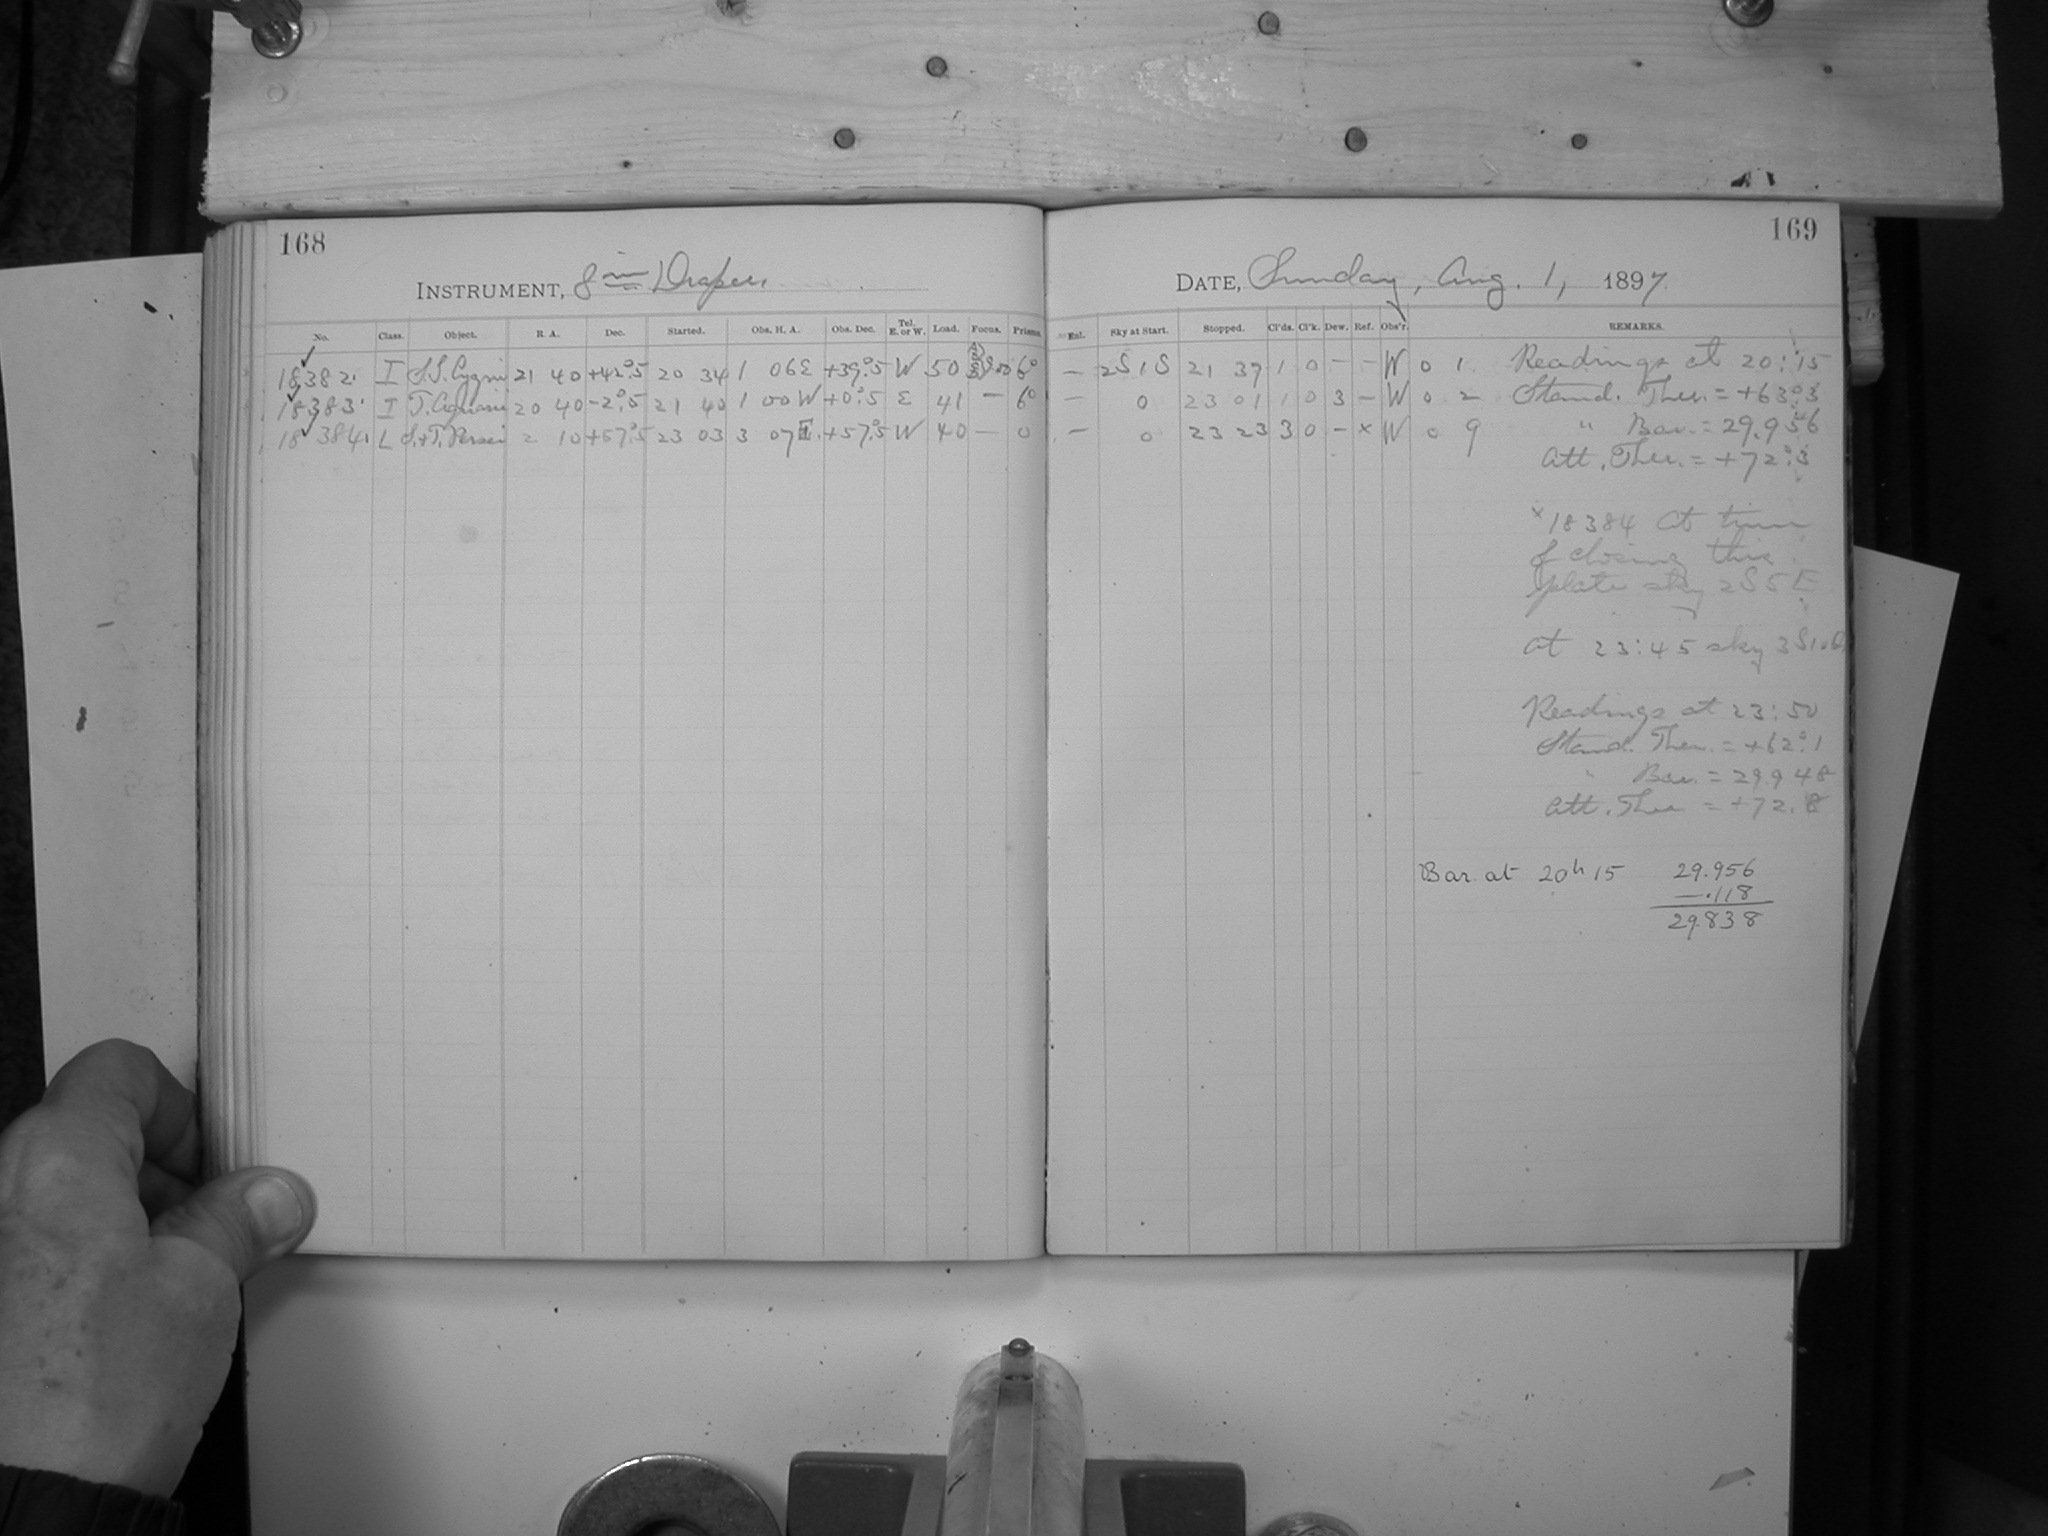 168
INSTRUMENT, 8 in Draper
No. Class. Object. R. A. Dec. Started. Obs. H. A. Obs. Dec. Tel. E. or W. Load. Focus. Prisms.
18382. I S.S. Cygni 21 40 +42°.5 20 34 1 06 E +39°.5 W 50 6°
18383. I T. Aquarii 20 40 -2°.5 21 40 1 00 W +0°.5 E 41 — 6°
18384. L S.+T. Persei 2 10 +57°.5 23 03 3 07 E. +57°.5 W 40 — 0
169
DATE, Sunday, Aug. 1, 1897.
Enl. Sky at Start. Stopped. Cl'ds. Cl'k. Dew. Ref. Obs'r. REMARKS.
— 2S1S 21 37 1 0 — — W 0 1
— 0 23 01 1 0 3 — W 0 2
— 0 23 23 3 0 — × W 0 9
Readings at 20:15
Stand. Ther. = +63°.3
" Bar. = 29.956
Att. Ther. = +72°.3
×18384 At time
of closing this
plate sky 2S5E
At 23:45 sky
Readings at 23:50
Stand. Ther. = +62°.1
" Bar. = 29.948
Att. Ther. = +72.8
Bar. at 20h 15 29.956
—.118
29.838